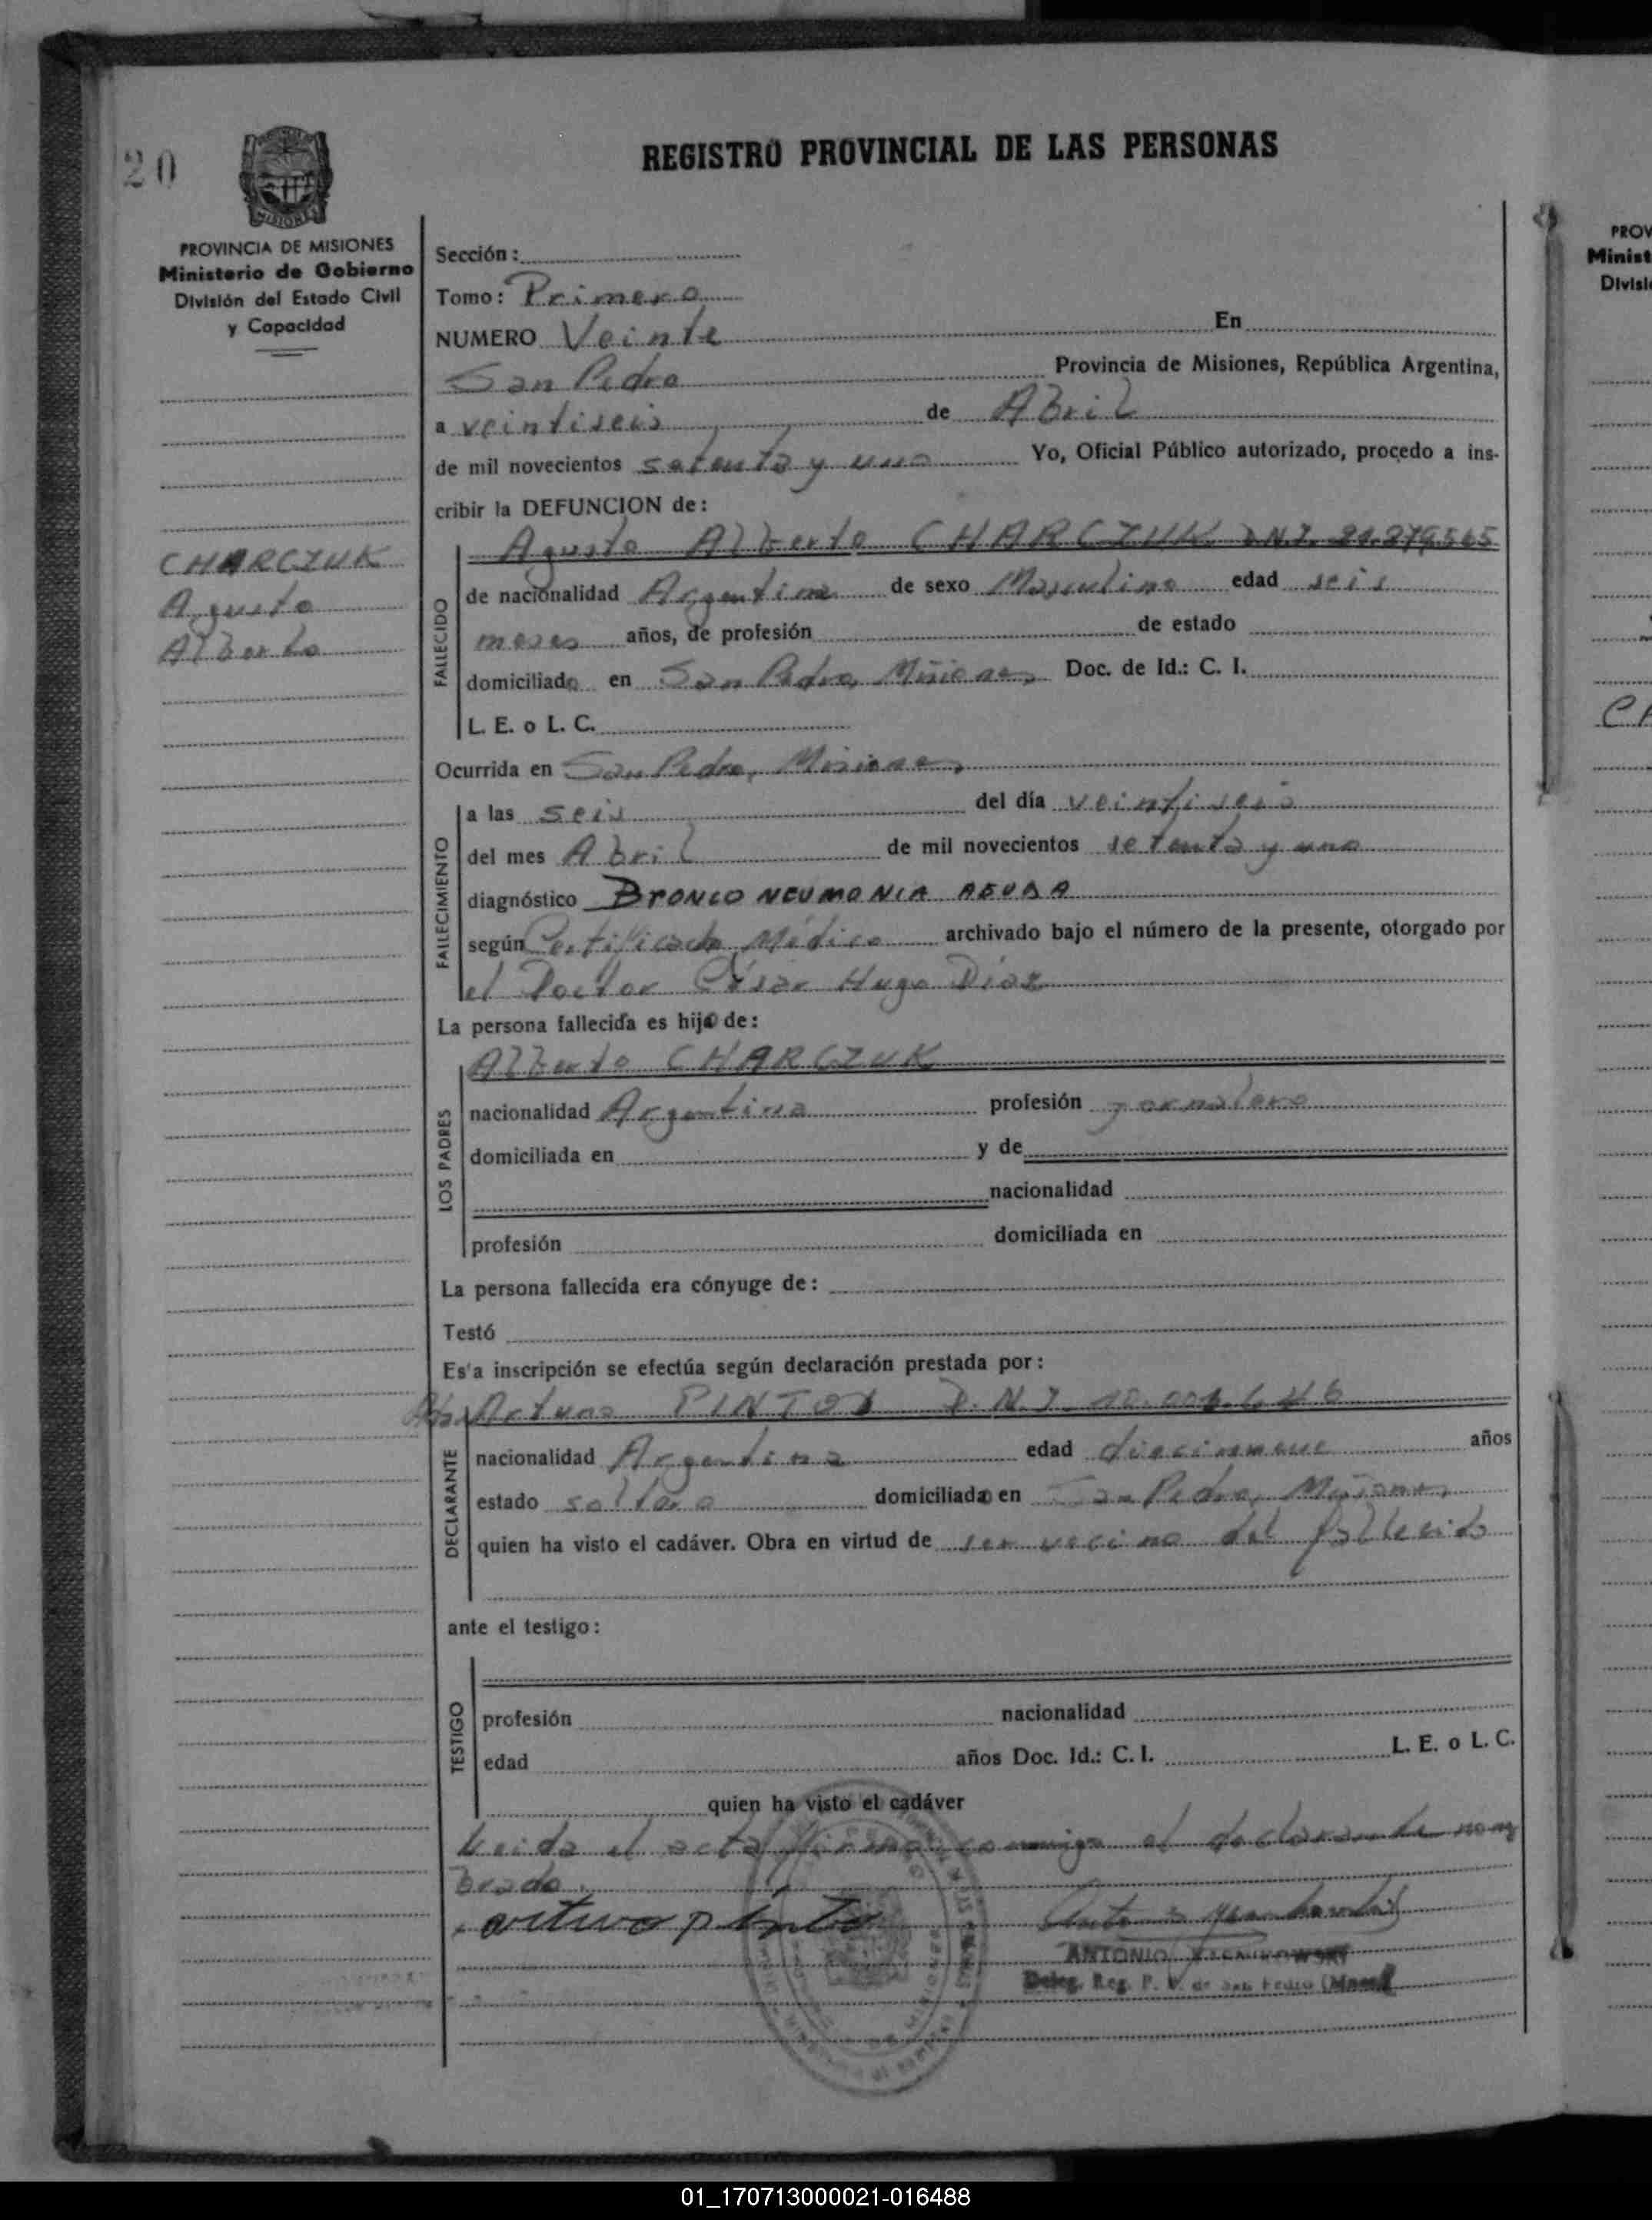 20
REGISTRO PROVINCIAL DE LAS PERSONAS
MISIONES
PROVINCIA DE MISIONES
Ministerio de Gobierno
División del Estado Civil
y Capacidad
CHARCZUK
Agusto
Alberto
Sección:
Tomo: Primero
NUMERO Veinte En
San Pedro Provincia de Misiones, República Argentina,
a veintiseis de Abril
de mil novecientos setenta y uno Yo, Oficial Público autorizado, procedo a ins-
cribir la DEFUNCION de:
Agusto Alberto CHARCZUK DNI. 21.279.565
FALLECIDO
de nacionalidad Argentina de sexo Masculino edad seis
meses años, de profesión de estado
domiciliado en San Pedro, Misiones Doc. de Id.: C. I.
L. E. o L. C.
Ocurrida en San Pedro, Misiones
FALLECIMIENTO
a las seis del día veintiseis
del mes Abril de mil novecientos setenta y uno
diagnóstico BRONCO NEUMONIA AGUDA
según Certificado Médico archivado bajo el número de la presente, otorgado por
el Doctor César Hugo Díaz
La persona fallecida es hijo de:
Alberto CHARCZUK
LOS PADRES
nacionalidad Argentina profesión jornalero
domiciliada en y de
nacionalidad
profesión domiciliada en
La persona fallecida era cónyuge de:
Testó
Es'a inscripción se efectúa según declaración prestada por:
Arturo PINTO D.N.I.
DECLARANTE
nacionalidad Argentina edad diecinueve años
estado soltero domiciliado en San Pedro, Misiones
quien ha visto el cadáver. Obra en virtud de ser vecino del fallecido
ante el testigo:
TESTIGO
profesión nacionalidad
edad años Doc. Id.: C. I. L. E. o L. C.
quien ha visto el cadáver
Leida el acta firma conmigo el declarante nom
brado.
arturo pinto
ANTONIO
Deleg. Reg. P. P. de San Pedro (Mnes)
PROV
Minist
Divisi
CH
01_170713000021-016488